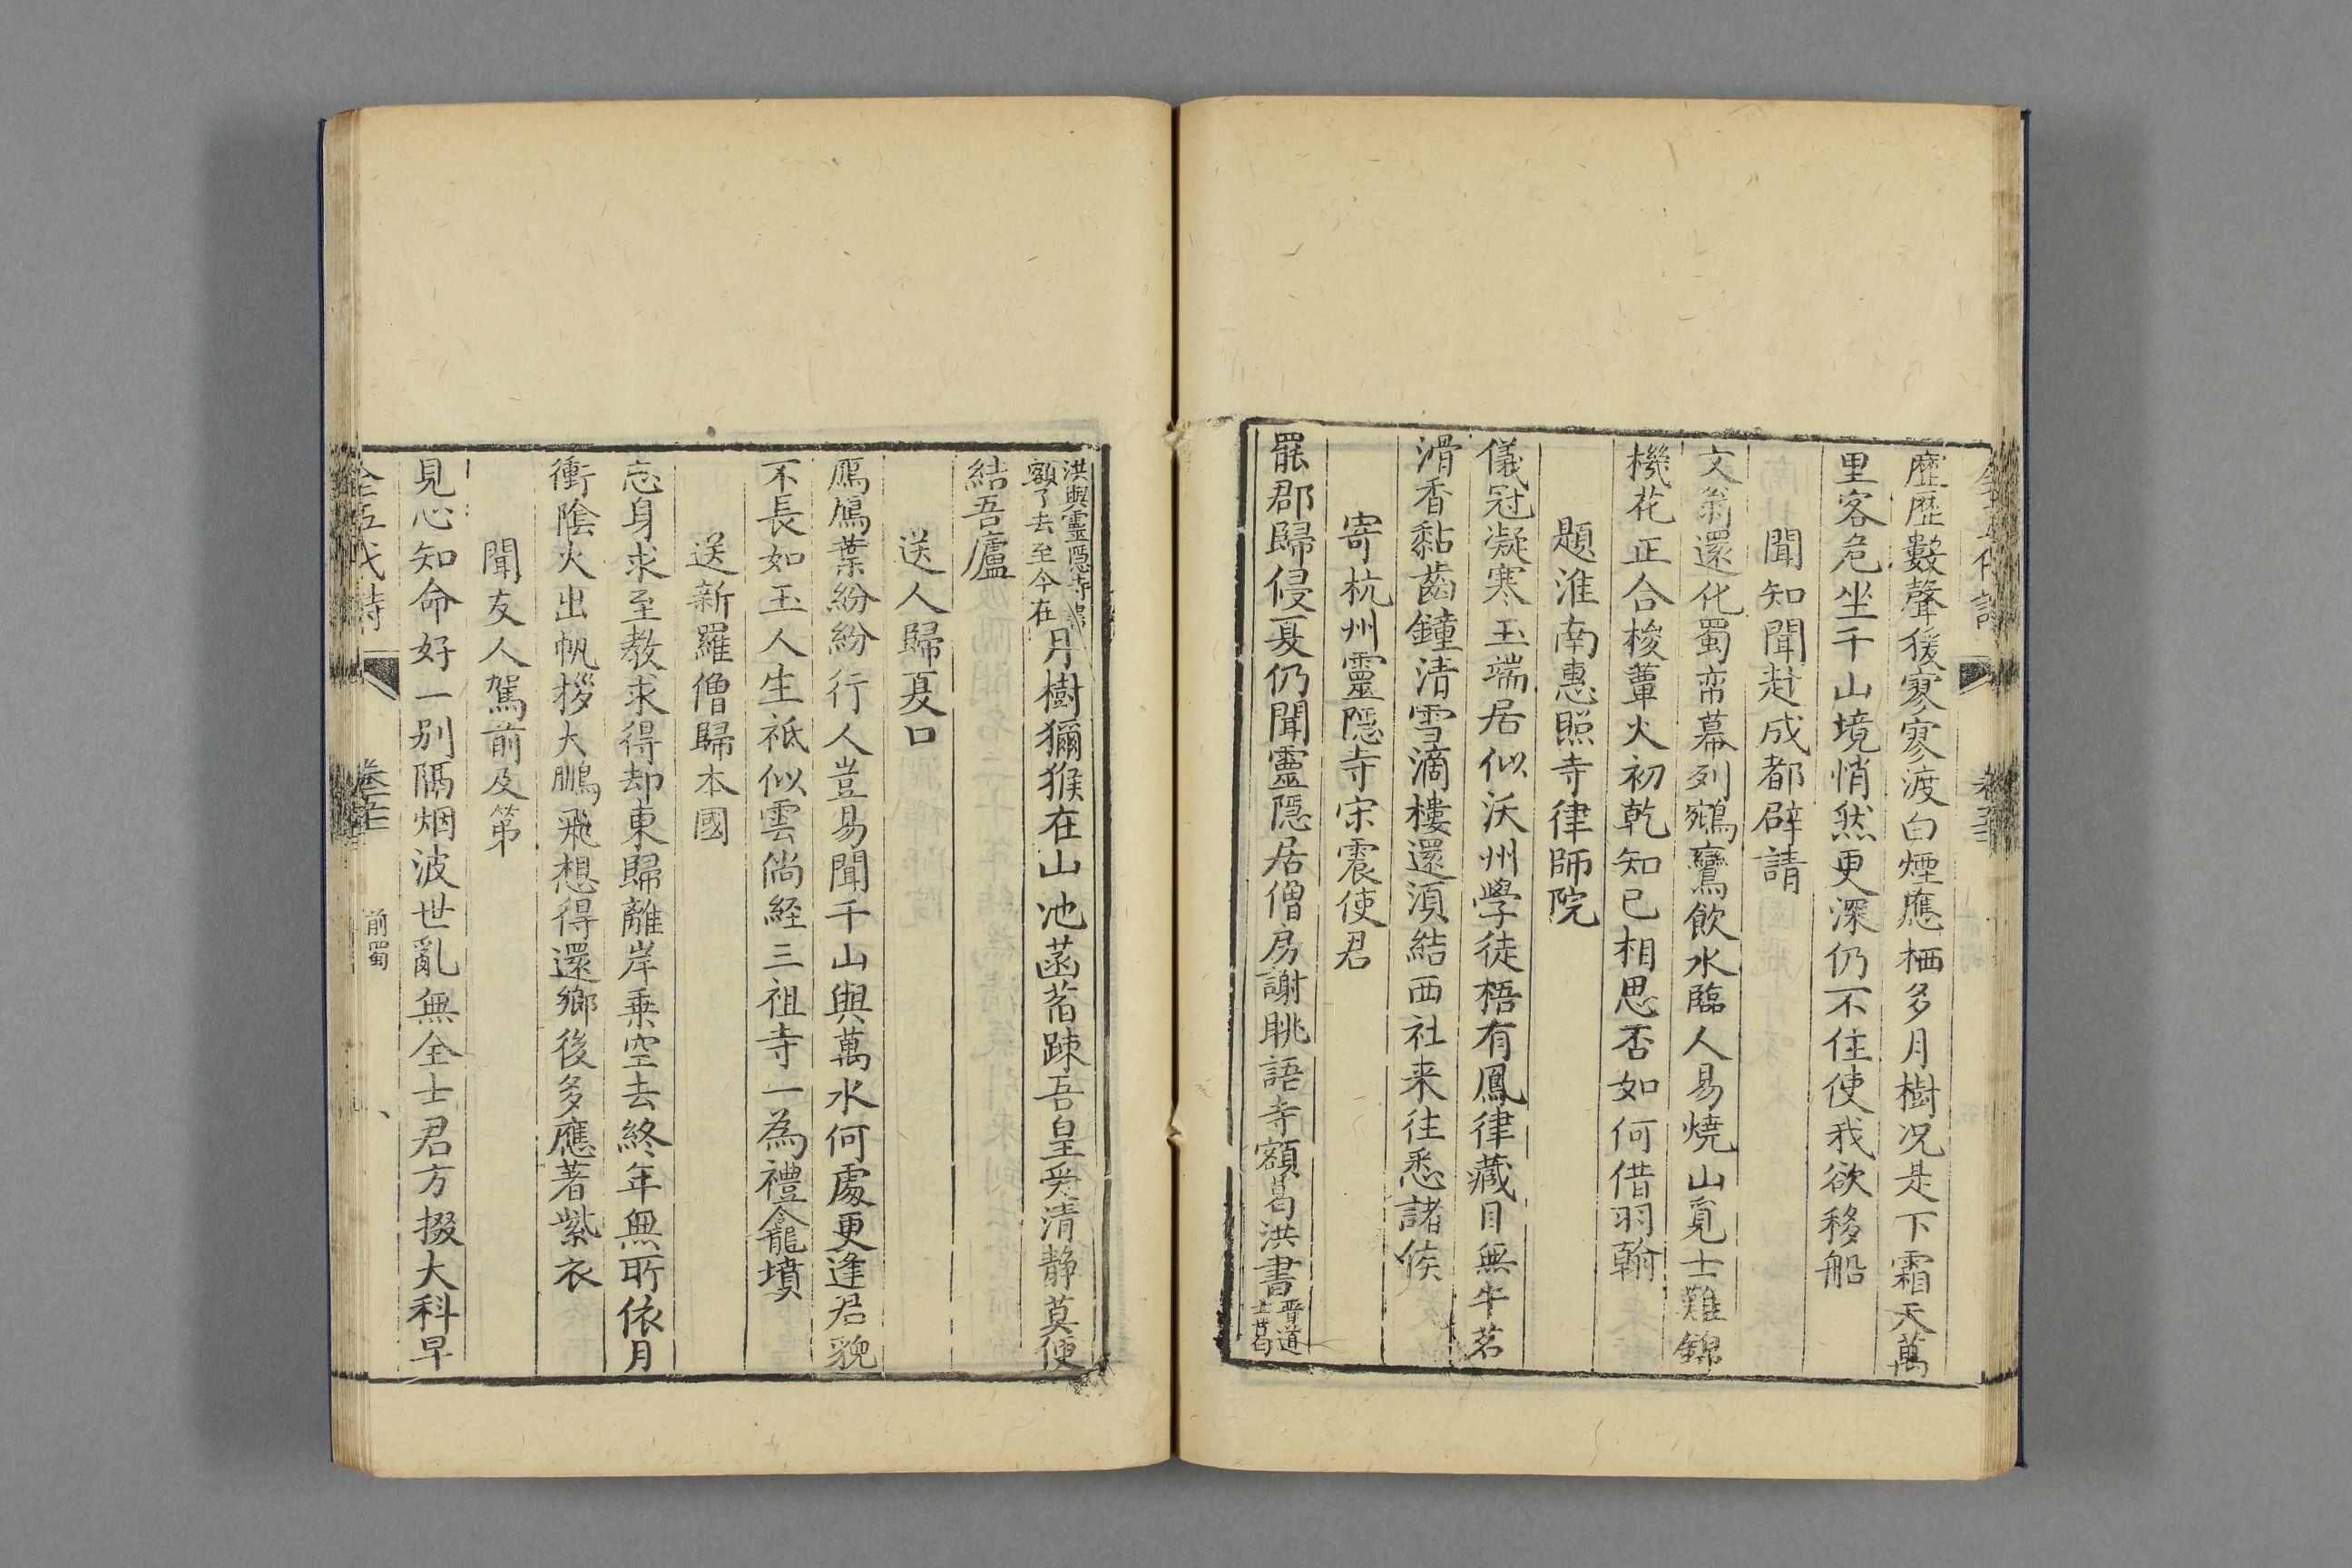 歷歷數聲猨寥寥渡白煙應栖多月樹况是下霜天萬
里客危坐千山境悄然更深仍不住使我欲移船
聞知聞赴成都辟請
文翁還化蜀帟幕列鵷鸞飲水臨人易燒山覓士難錦
機花正合梭蕈火初乾知已相思否如何借羽翰
題淮南惠照寺律師院
儀冠凝寒玉端居似沃州學徒梧有鳳律藏目無牛茗
滑香黏齒鐘清雪滴樓還須結西社来往悉諸侯
寄杭州靈隱寺宋震使君
罷郡歸侵夏仍聞靈隱居僧房謝朓語寺額葛洪書晋道
士葛
洪與靈隱寺書
額了去至今在月樹獼猴在山池菡萏踈吾皇爱清静莫便
結吾廬
送人歸夏口
鴈鴈葉紛紛行人豈易聞千山與萬水何處更逢君貌
不長如玉人生祗似雲倘経三祖寺一為禮龕墳
送新羅僧歸本國
忘身求至教求得却東歸離岸乗空去終年無所依月
衝陰火出帆拶大鵬飛想得還鄉後多應著紫衣
聞友人駕前及第
見心知命好一别隔烟波世亂無全士君方掇大科早
全五代詩
前蜀